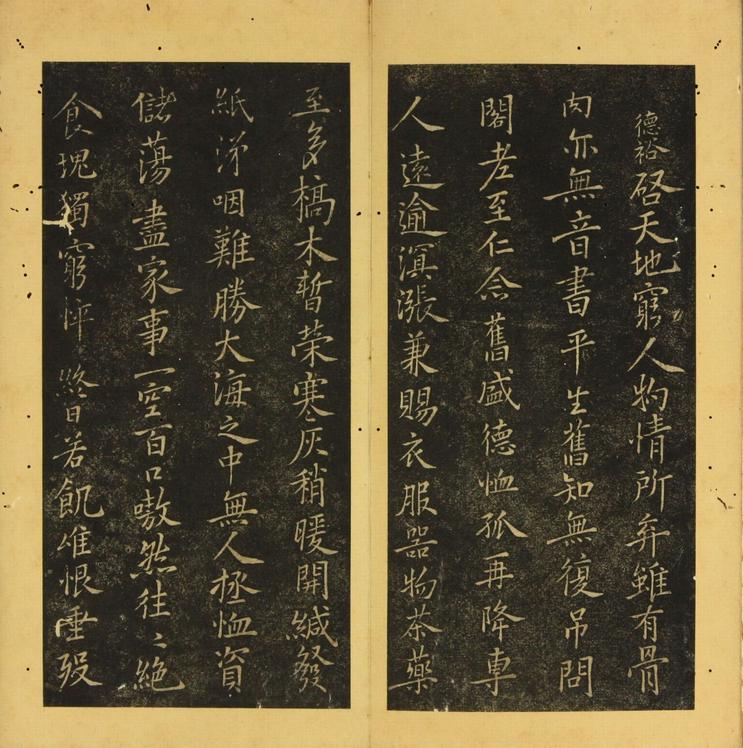 德裕啓天地窮人物情所弃雖有骨
肉亦無音書平生舊知無復吊問
閣老至仁念舊盛德恤孤再降專
人遠逾溟漲兼賜衣服器物茶藥
至多槁木暫荣寒灰稍暖開緘發
紙涕咽難勝大海之中無人拯恤資
儲蕩盡家事一空百口嗷然往〻絶
食塊獨窮悴終日苦飢唯恨垂殁